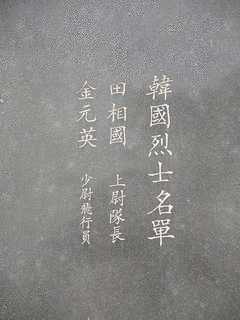 韓國烈士名單
田相國 上尉隊長
金元英 少尉飛行員